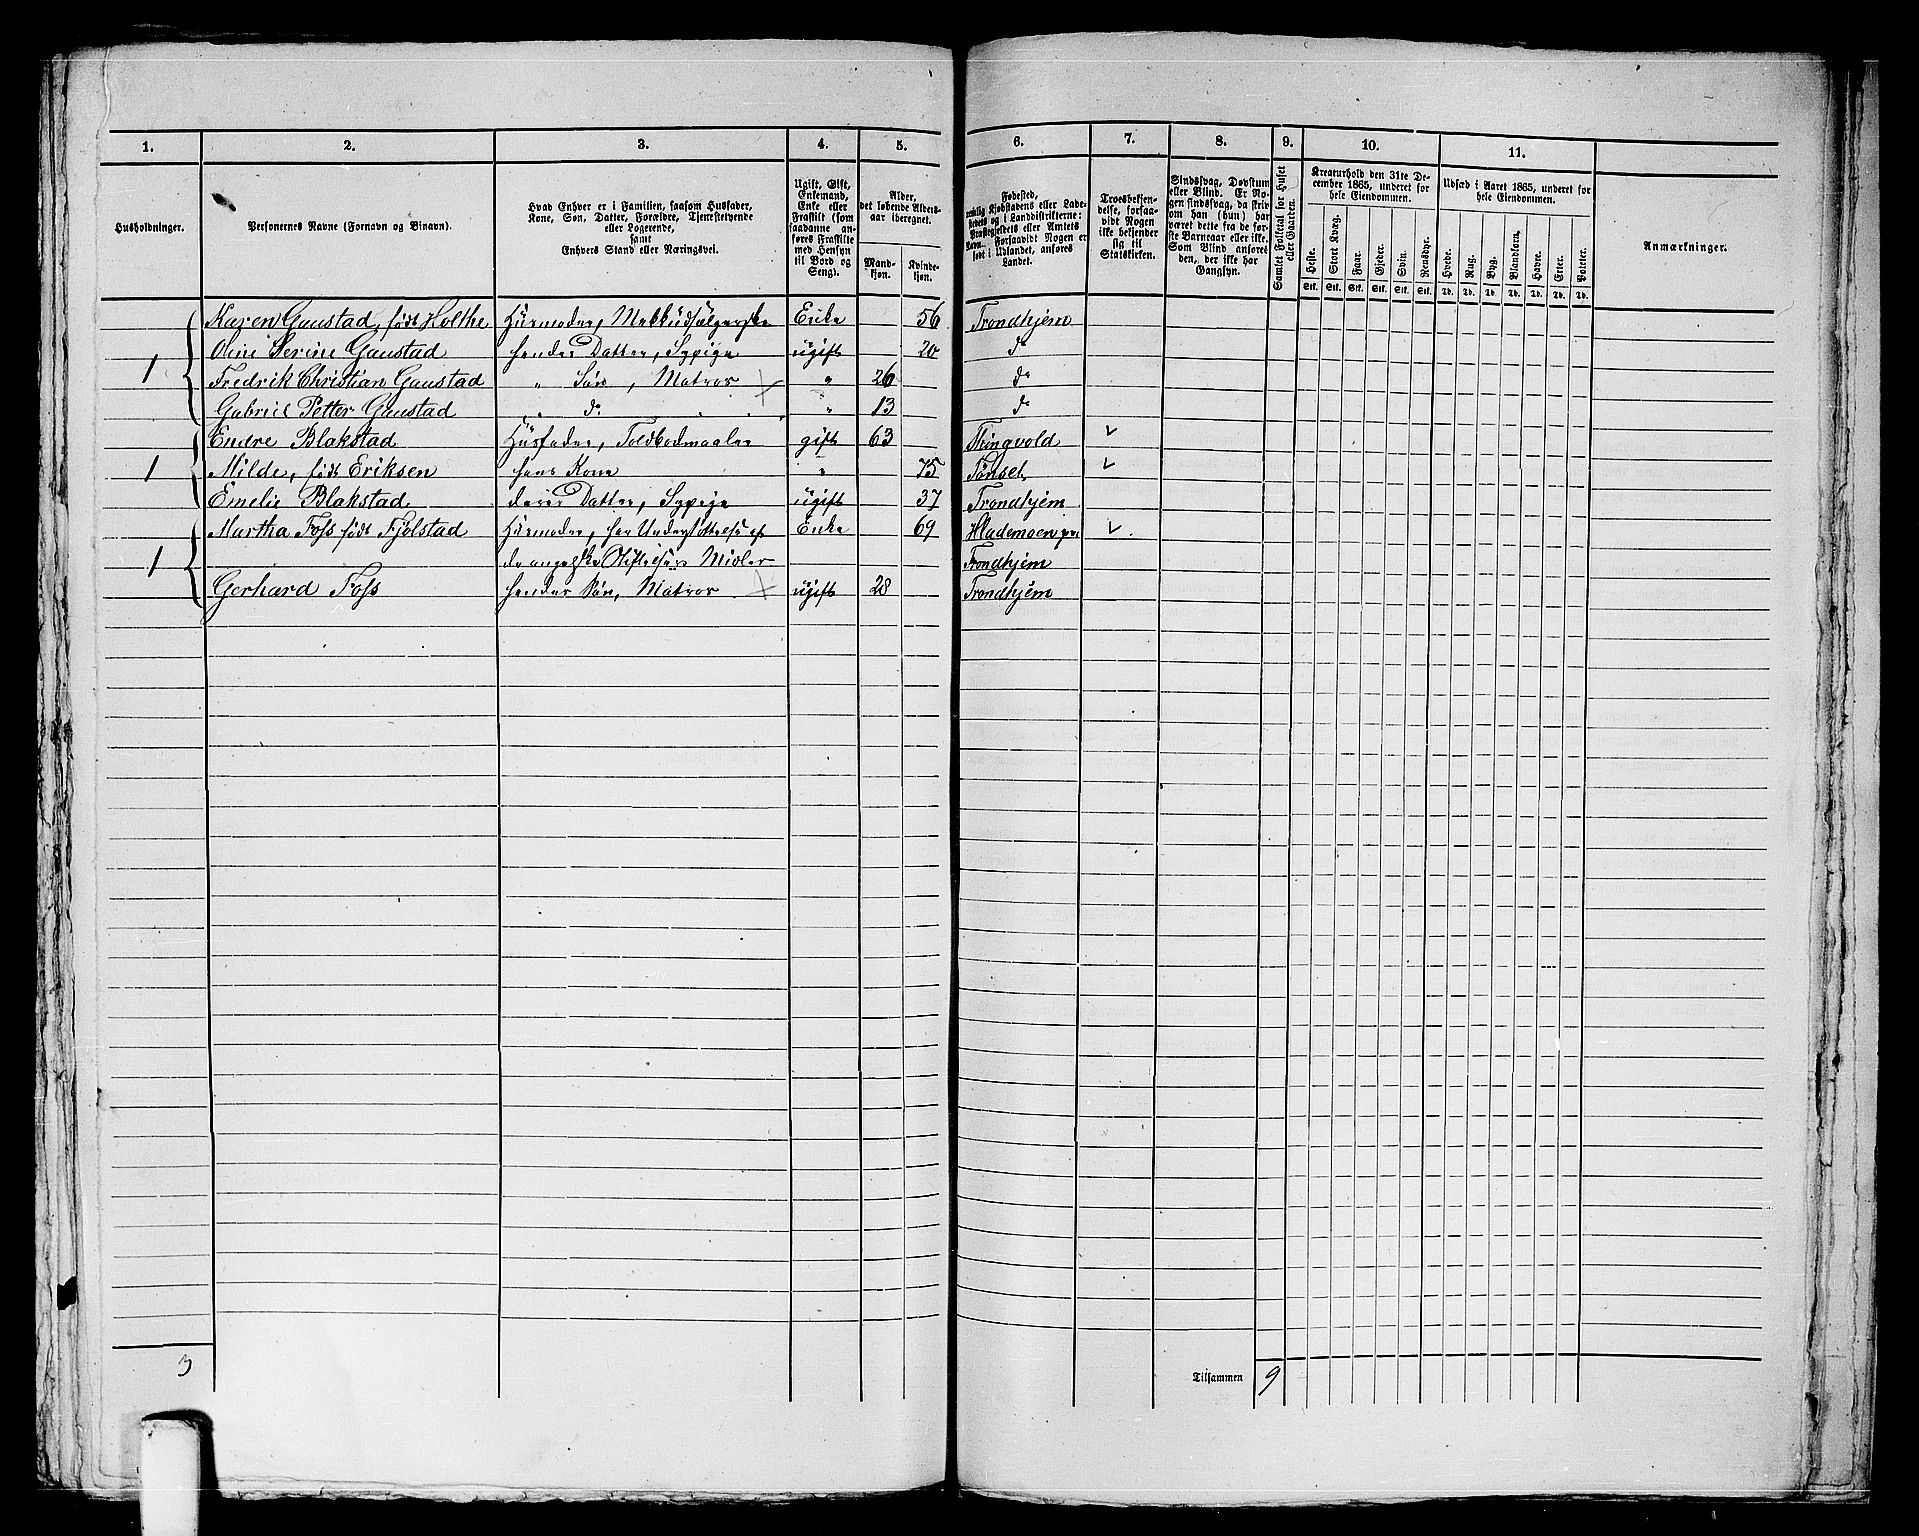 1. 2. 3. 4. 5. 6. 7. 8. 9. 10. 11.
Husholdninger.
Personernes Navne (Fornavn og Binavn).
Hvad Enhver er i Familien, saasom Husfader,
Kone, Søn, Datter, Forældre, Tjenestetyende
eller Logerende,
samt
Enhvers Stand eller Næringsvei.
Ugift, Gift,
Enkemand,
Enke eller
Fraskilt (som
saadanne an-
føres Fraskilte
med Hensyn
til Bord og
Seng).
Alder,
det løbende Alders-
aar iberegnet.
Mand-
kjøn.
Kvinde-
kjøn.
Fødested,
nemlig Kjøbstadens eller Lade-
stedets og i Landdistrikterne:
Præstegjeldets eller Amtets
Navn. Forsaavidt Nogen er
født i Udlandet, anføres
Landet.
Troesbekjen-
delse, forsaa-
vidt Nogen
ikke bekjender
sig til
Statskirken.
Sindssvag, Døvstum
eller Blind. Er No-
gen sindssvag, da skriv
om han (hun) har
været dette fra de før-
ste Barneaar eller ikke.
Som Blind anføres
den, der ikke har
Gangsyn.
Samlet Folketal for Huset
eller Gaarden.
Kreaturhold den 31te De-
cember 1865, underet for
hele Eiendommen.
Heste. Stort Kvæg. Faar. Gjeder. Svin. Rensdyr.
Stk. Stk. Stk. Stk. Stk. Stk.
Udsæd i Aaret 1865, underet for
hele Eiendommen.
Hvede. Rug. Byg. Blandkorn. Havre. Erter. Poteter.
Td. Td. Td. Td. Td. Td. Td.
Anmærkninger.
1 Karen Gaustad, født Holthe Husmoder, Enke 56 Trondhjem
Oline Serine Gaustad hendes Datter, Sypige ugift 20 do
Fredrik Christian Gaustad " Søn, Matros " 26 do
Gabriel Petter Gaustad " do " 13 do
1 Endre Blakstad Husfader, Toldbodmaaler gift 63 Thingvold
Milde, født Eriksen hans Kone " 75 Tønset
Emelie Blakstad deres Datter, Sypige ugift 37 Trondhjem
1 Martha Foss født Fjolstad Husmoder, har Understøttelse af Enke 69 Hlademoen pr
Stiftelsers Midler Trondhjem
Gerhard Foss hendes Søn, Matros ugift 28 Trondhjem
3 Tilsammen 9